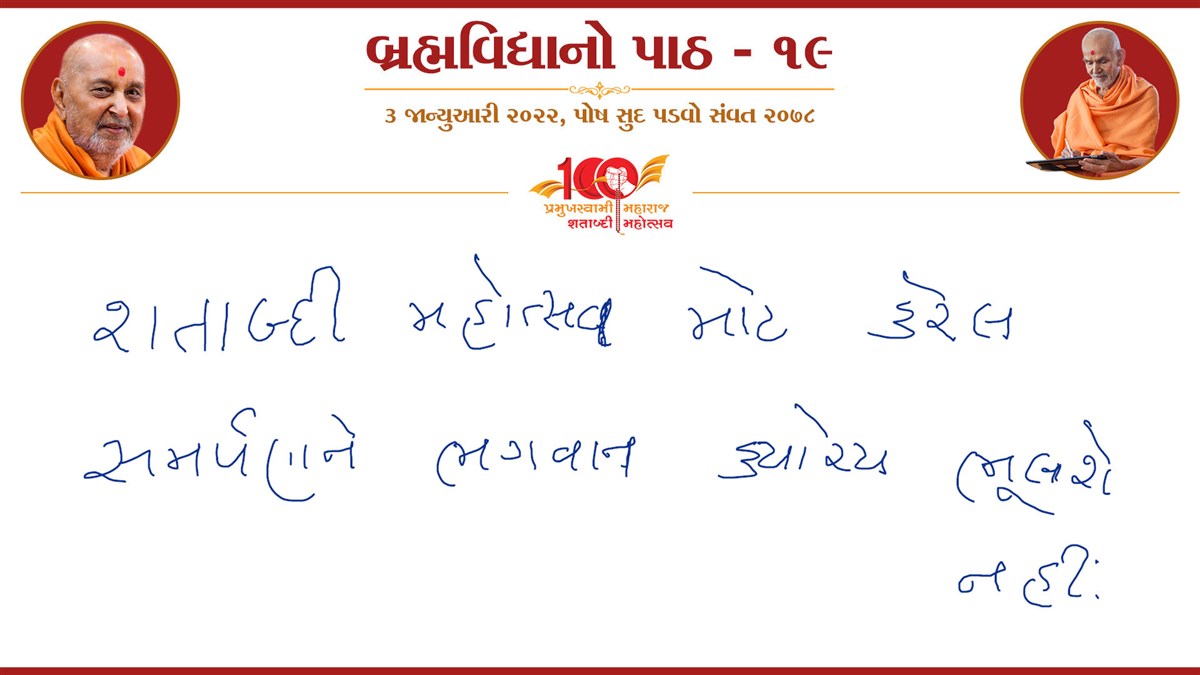 બ્રહ્મવિદ્યાનો પાઠ - ૧૯
૩ જાન્યુઆરી ૨૦૨૨, પોષ સુદ પડવો સંવત ૨૦૭૮
100
પ્રમુખસ્વામી મહારાજ
શતાબ્દી મહોત્સવ
શતાબ્દી મહોત્સવ માટે કરેલ
સમર્પણને ભગવાન ક્યારેય ભૂલશે
નહીં.